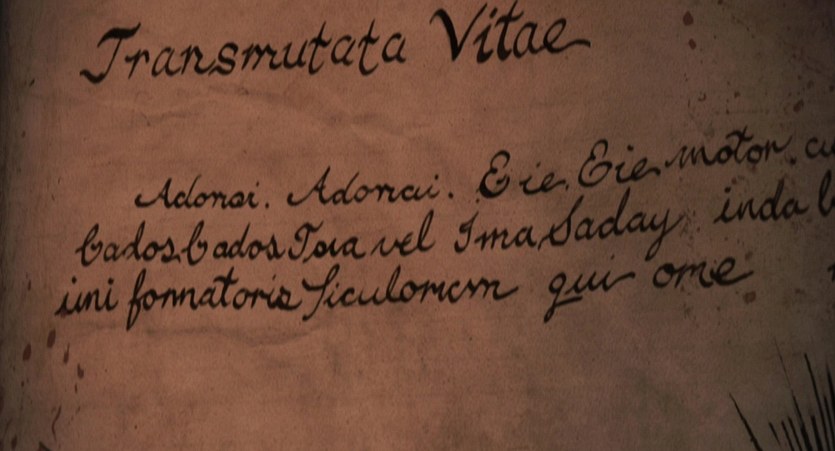 Transmutata Vitae
Adonai. Adonai. Eie. Eie motor.
Cados. Cados Toia vel Ima Saday inda
uni formatoris Siculorum qui ome